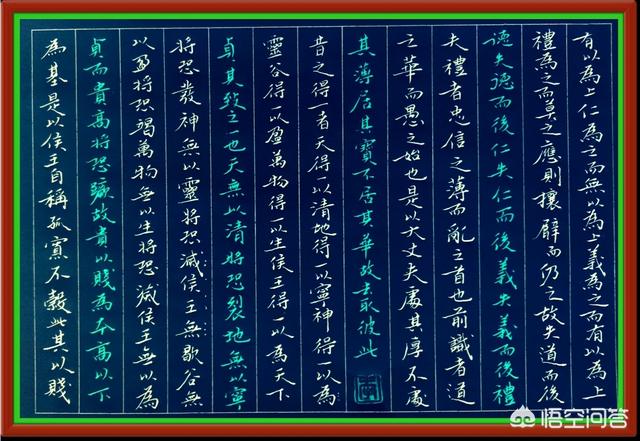 有以為上仁為之而無以為上義為之而有以為上
禮為之而莫之應則攘臂而仍之故失道而後
德失德而後仁失仁而後義失義而後禮
夫禮者忠信之薄而亂之首也前識者道
之華而愚之始也是以大丈夫處其厚不處
其薄居其實不居其華故去取彼此
昔之得一者天得一以清地得一以寧神得一以為
靈谷得一以盈萬物得一以生侯王得一以為天下
貞其致之一也天無以清將恐裂地無以寧
將恐發神無以靈將恐滅侯王無歇谷無
以盈將恐竭萬物無以生將恐滅侯王無以為
貞而貴高將恐蹶故貴以賤為本高以下
為基是以侯王自稱孤寡不穀此其以賤
悟空问答